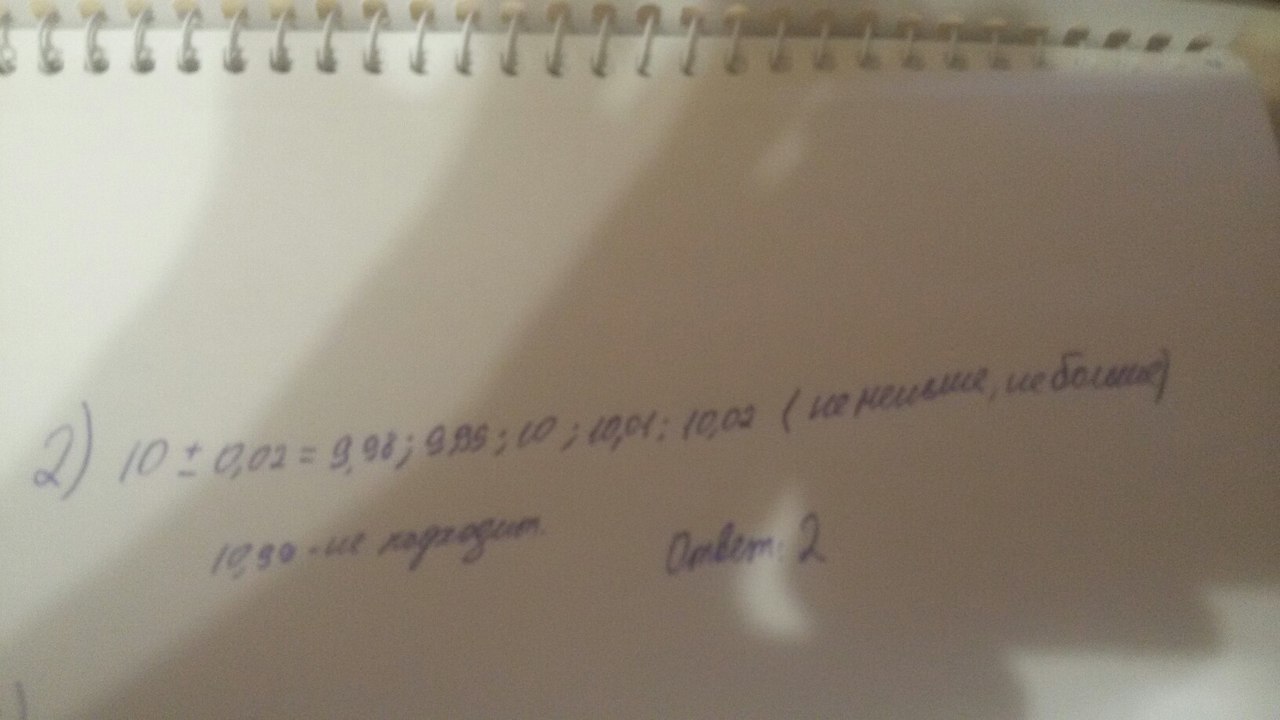 2) 10 ± 0,02 = 9,98; 9,99; 10; 10,01; 10,02 (не меньше, не больше)
10,90 - не подходит. Ответ: 2